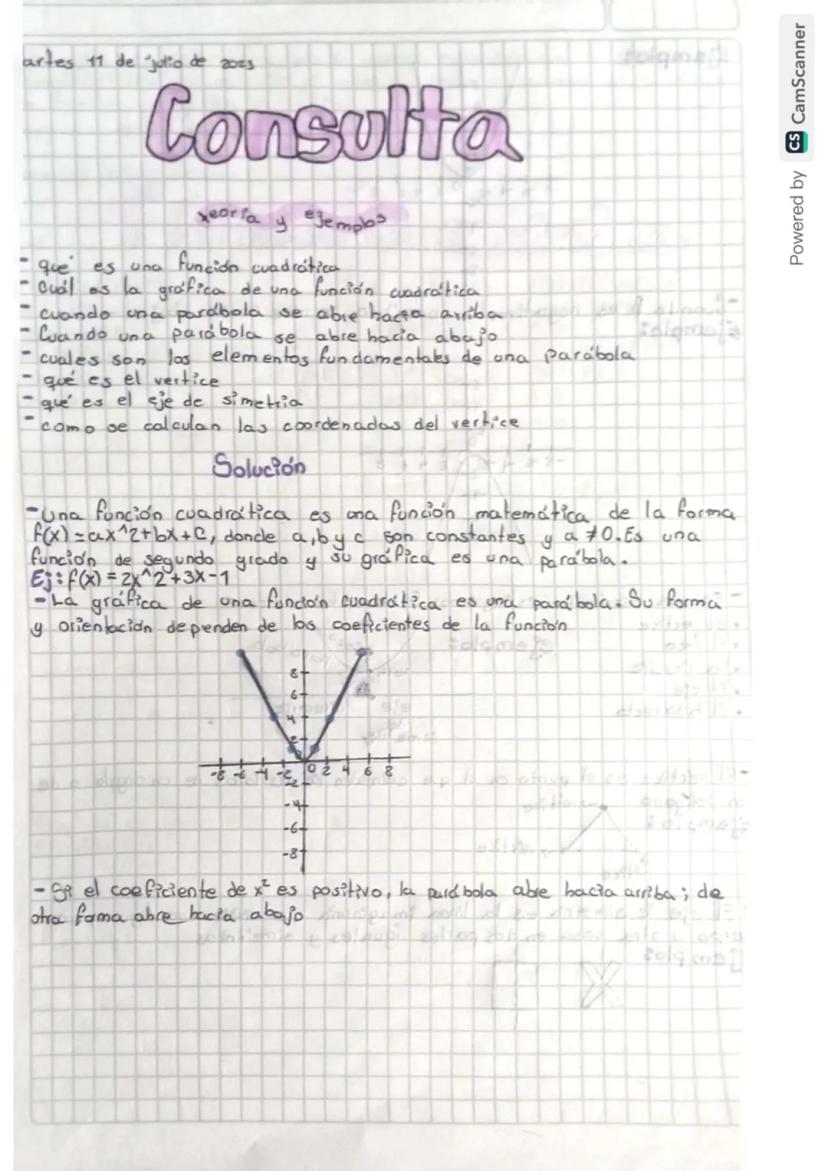 artes 11 de julio de 2023
Consulta
teoría y ejemplos
- qué es una función cuadrática
- Cuál es la gráfica de una función cuadrática
- cuando una parábola se abre hacia arriba
- Cuando una parábola se abre hacia abajo
- cuales son los elementos fundamentales de una parábola
- qué es el vertice
- qué es el eje de simetria
- como se calculan las coordenadas del vertice
Solución
- Una función cuadrática es una función matemática de la forma
f(x)=ax^2+bx+c, donde a, b y c son constantes y a ≠ 0. Es una
función de segundo grado y su gráfica es una parábola.
Ej: f(x) = 2x^2+3x-1
- La gráfica de una función cuadrática es una parábola. Su forma
y orientación dependen de los coeficientes de la función
8
6
4
2
-8 -6 -4 -2 0 2 4 6 8
-2
-4
-6
-8
- Si el coeficiente de x² es positivo, la parábola abre hacia arriba; de
otra forma abre hacia abajo
Powered by CS CamScanner